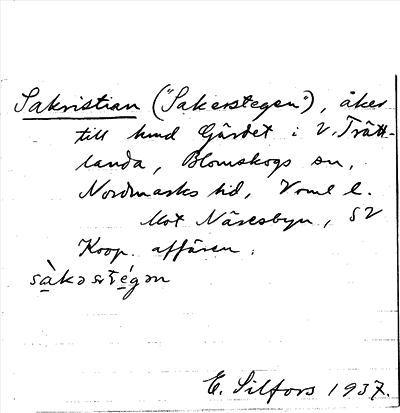 Sakristian ("Sakerstegen"), åker
till hmd Gärdet i V. Trätt-
landa, Blomskogs sn,
Nordmarks hd, Vrml l.
Mot Näresbyn, SV
Koop. affären.
E. Silfors 1937.